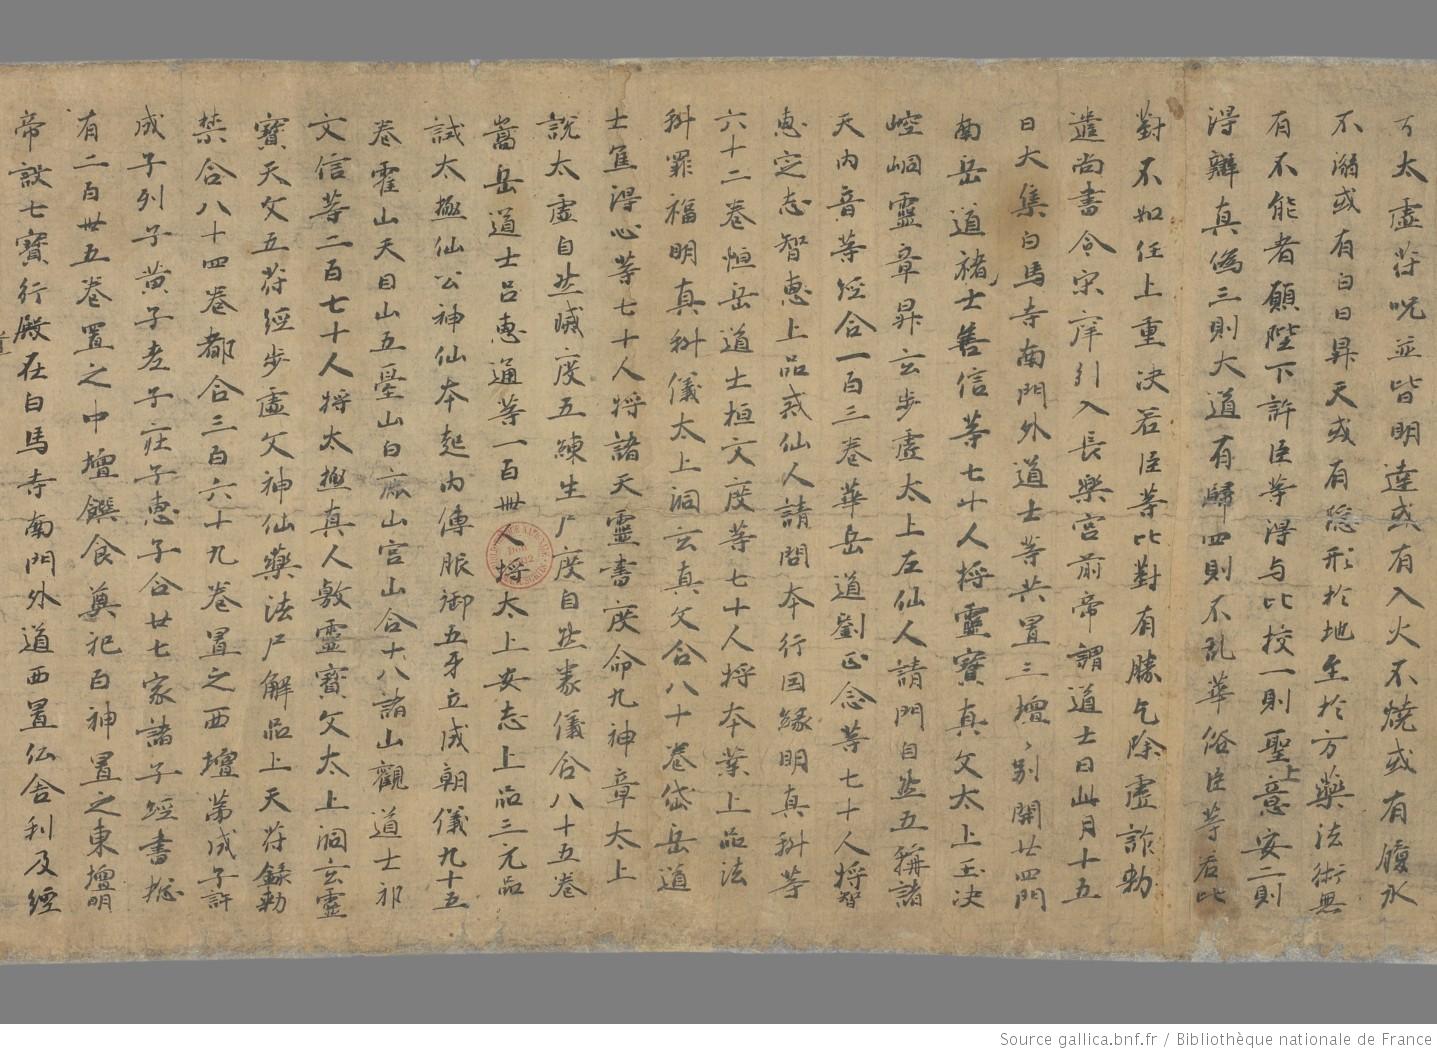 丁太虛苻呪並皆明達或有入火不燒或有履水
不溺或有白日昇天或有隱形於地至於方藥法術無
有不能者願陛下許臣等得与比校一則聖上意安二則
得辯真偽三則大道有歸四則不乱華俗臣等若比
對不如任上重决若臣等比對有勝乞除虛詐勑
遣尚書令宋庠引入長樂宮前帝謂道士曰此月十五
日大集白馬寺南門外道士等共置三壇〻別開廿四門
南岳道士褚善信等七十人將靈寶真文太上玉决
崆峒靈章昇玄步虛太上左仙人請問自然五稱諸
天內音等經合一百三卷華岳道劉正念等七十人將智
惠定志智惠上品戒仙人請問本行因緣明真科等
六十二卷恒岳道士桓文度等七十人將本業上品法
科罪福明真科儀太上洞玄真文合八十卷岱岳道
士焦得心等七十人將諸天靈書度命九神章太上
說太虛自然滅度五練生尸度自然券儀合八十五卷
嵩岳道士呂惠通等一百卌人將太上安志上品三元品
誡太極仙公神仙本起內傳服御五牙立成朝儀九十五
卷霍山天目山五臺山白鹿山宮山合十八諸山觀道士祁
文信等二百七十人將太極真人敷靈寶文太上洞玄靈
寶天文五苻經步虛文神仙藥法尸解品上天苻錄勑
禁合八十四卷都合三百六十九卷置之西壇第成子許
成子列子黃子老子莊子惠子合廿七家諸子經書揔
有二百卅五卷置之中壇饌食奠祀百神置之東壇明
帝設七寶行殿在白馬寺南門外道西置仏舍利及經
道
Source gallica.bnf.fr / Bibliothèque nationale de France